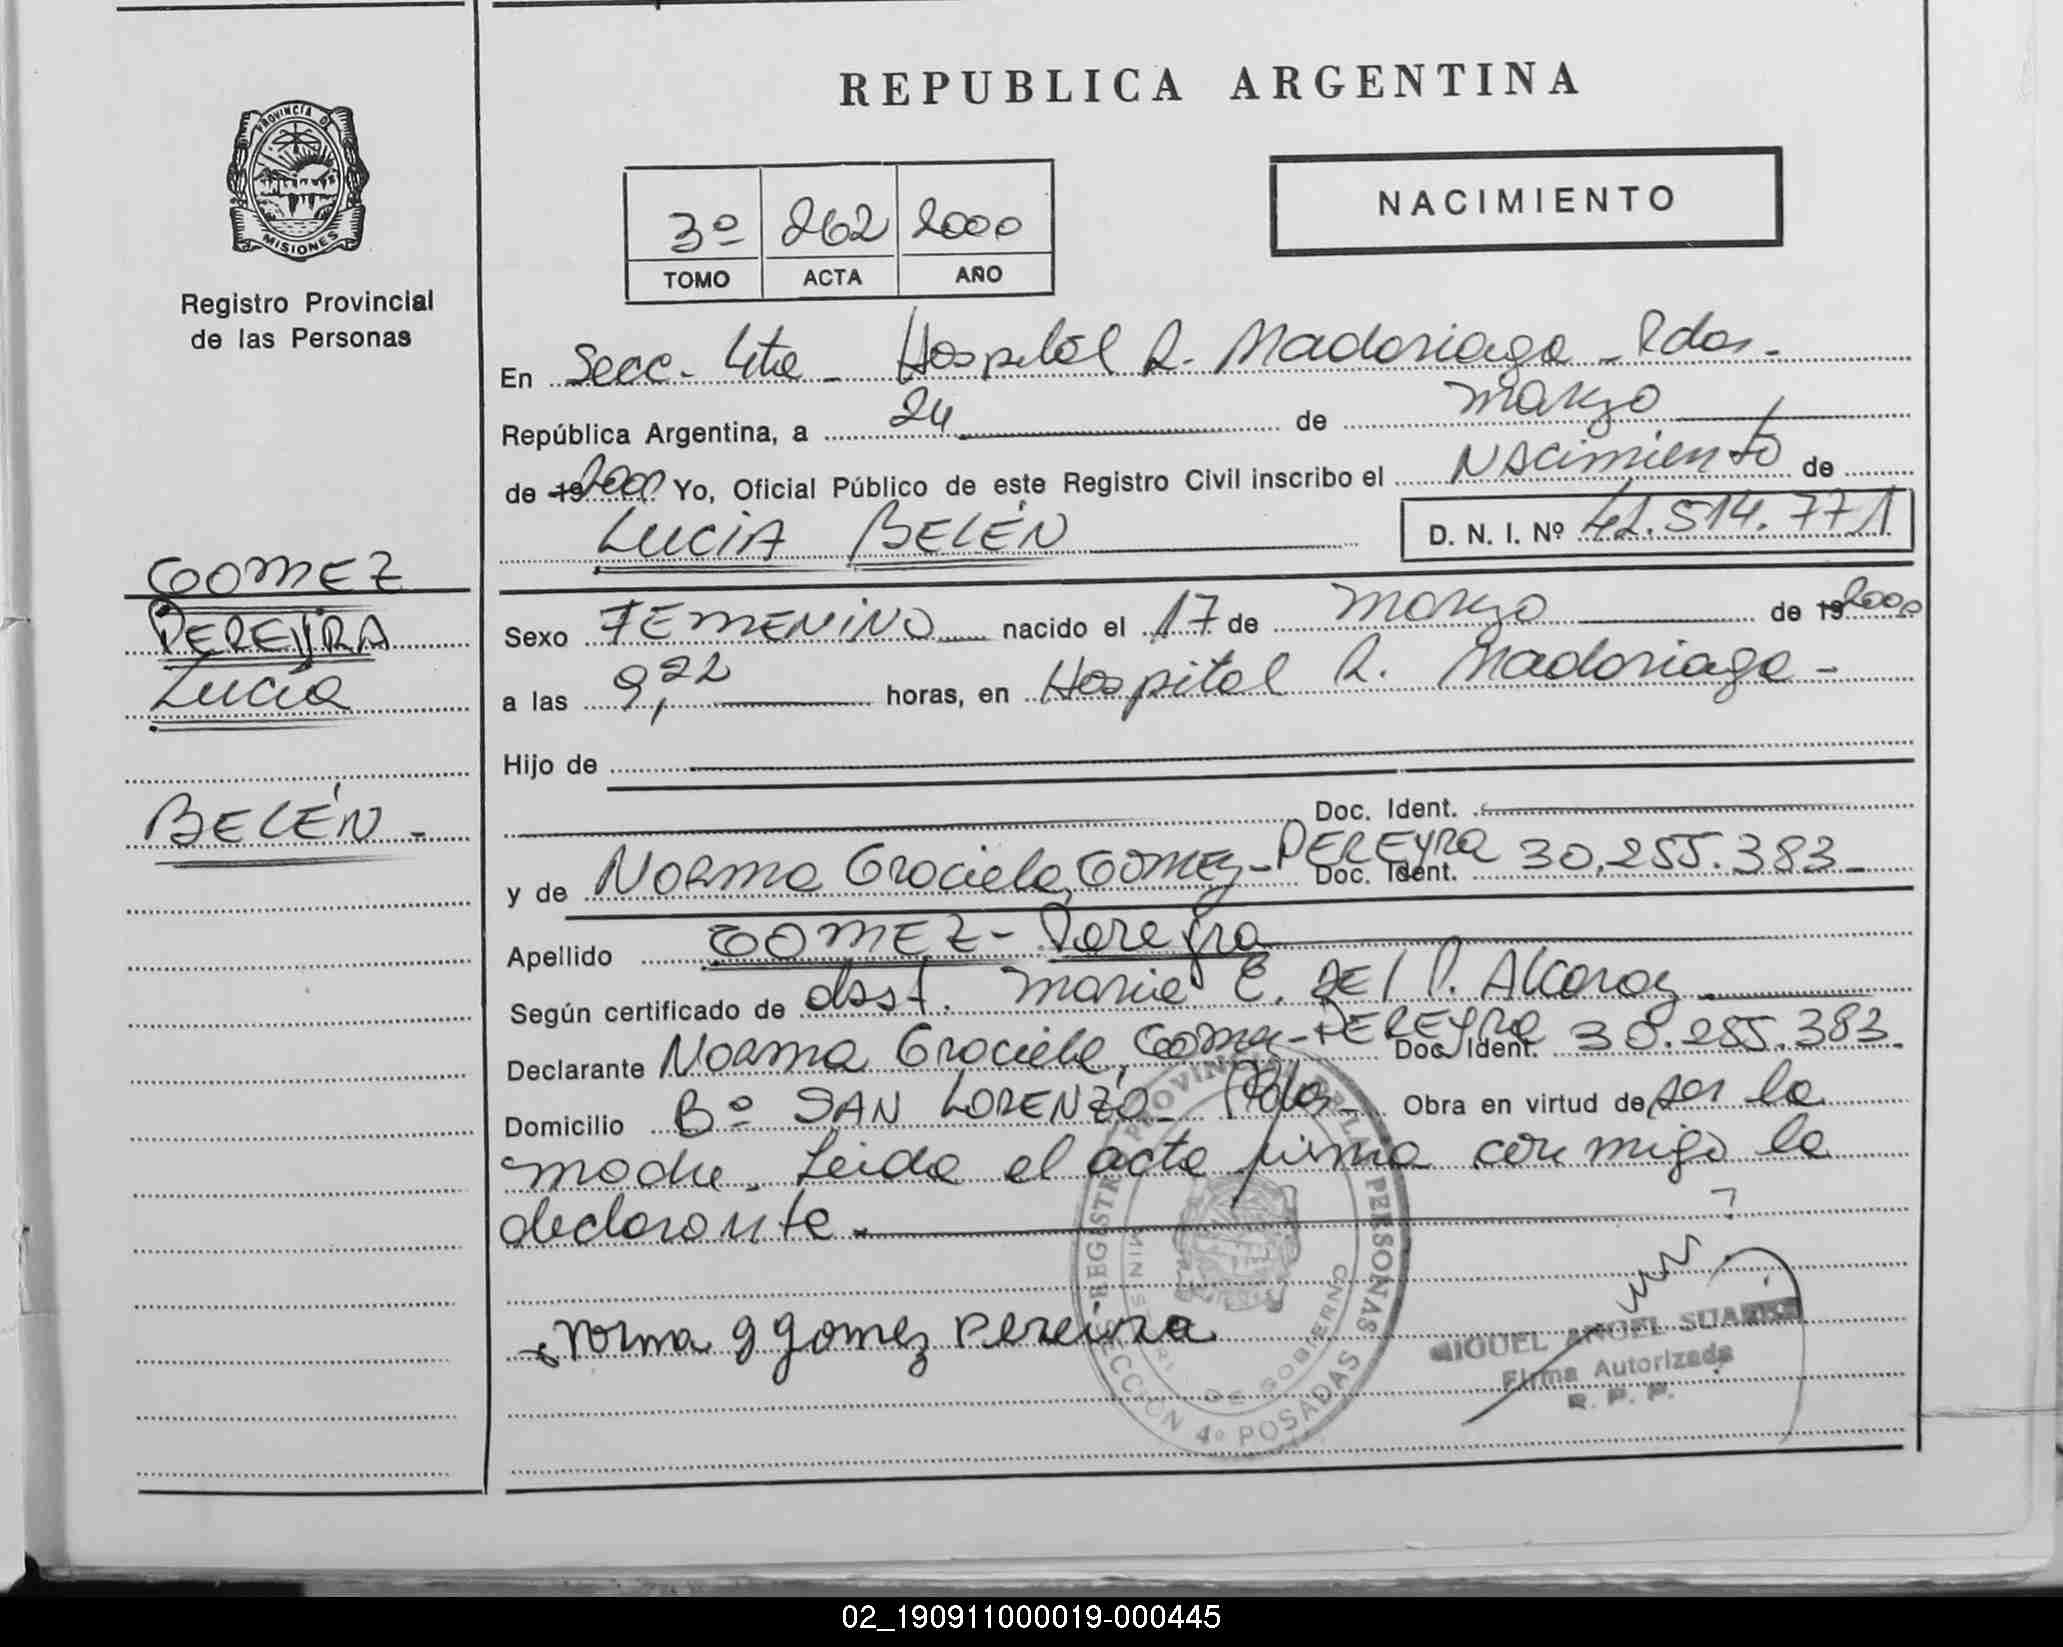 REPUBLICA ARGENTINA
PROVINCIA D
MISIONES
Registro Provincial
de las Personas
NACIMIENTO
3º 262 2000
TOMO ACTA AÑO
En Secc. 4ta - Hospital R. Madariaga - Pdas.
República Argentina, a 24 de marzo
de 19 2000 Yo, Oficial Público de este Registro Civil inscribo el Nacimiento de
LUCIA BELÉN D. N. I. Nº 42.514.771
GOMEZ
PEREYRA
Lucía
BELÉN -
Sexo FEMENINO nacido el 17 de marzo de 19 2000
a las 9,22 horas, en Hospital R. Madariaga -
Hijo de
Doc. Ident.
y de Norma Graciela GOMEZ - PEREYRA Doc. Ident. 30.255.383 -
Apellido GOMEZ - Pereyra
Según certificado de obst. Maria E. DEl P. Alcaraz
Declarante Norma Graciela Gomez - PEREYRA Doc. Ident. 30.255.383 -
Domicilio Bº SAN LORENZO - Pdas - Obra en virtud de ser la
madre. Leida el acta firma conmigo la
declarante -
Norma g gomez Pereyra
REGISTRO PROVINCIAL DE LAS PERSONAS
MINISTERIO DE GOBIERNO
SECCION 4º POSADAS
MIGUEL ANGEL SUAREZ
Firma Autorizada
R. P. P.
02_190911000019-000445